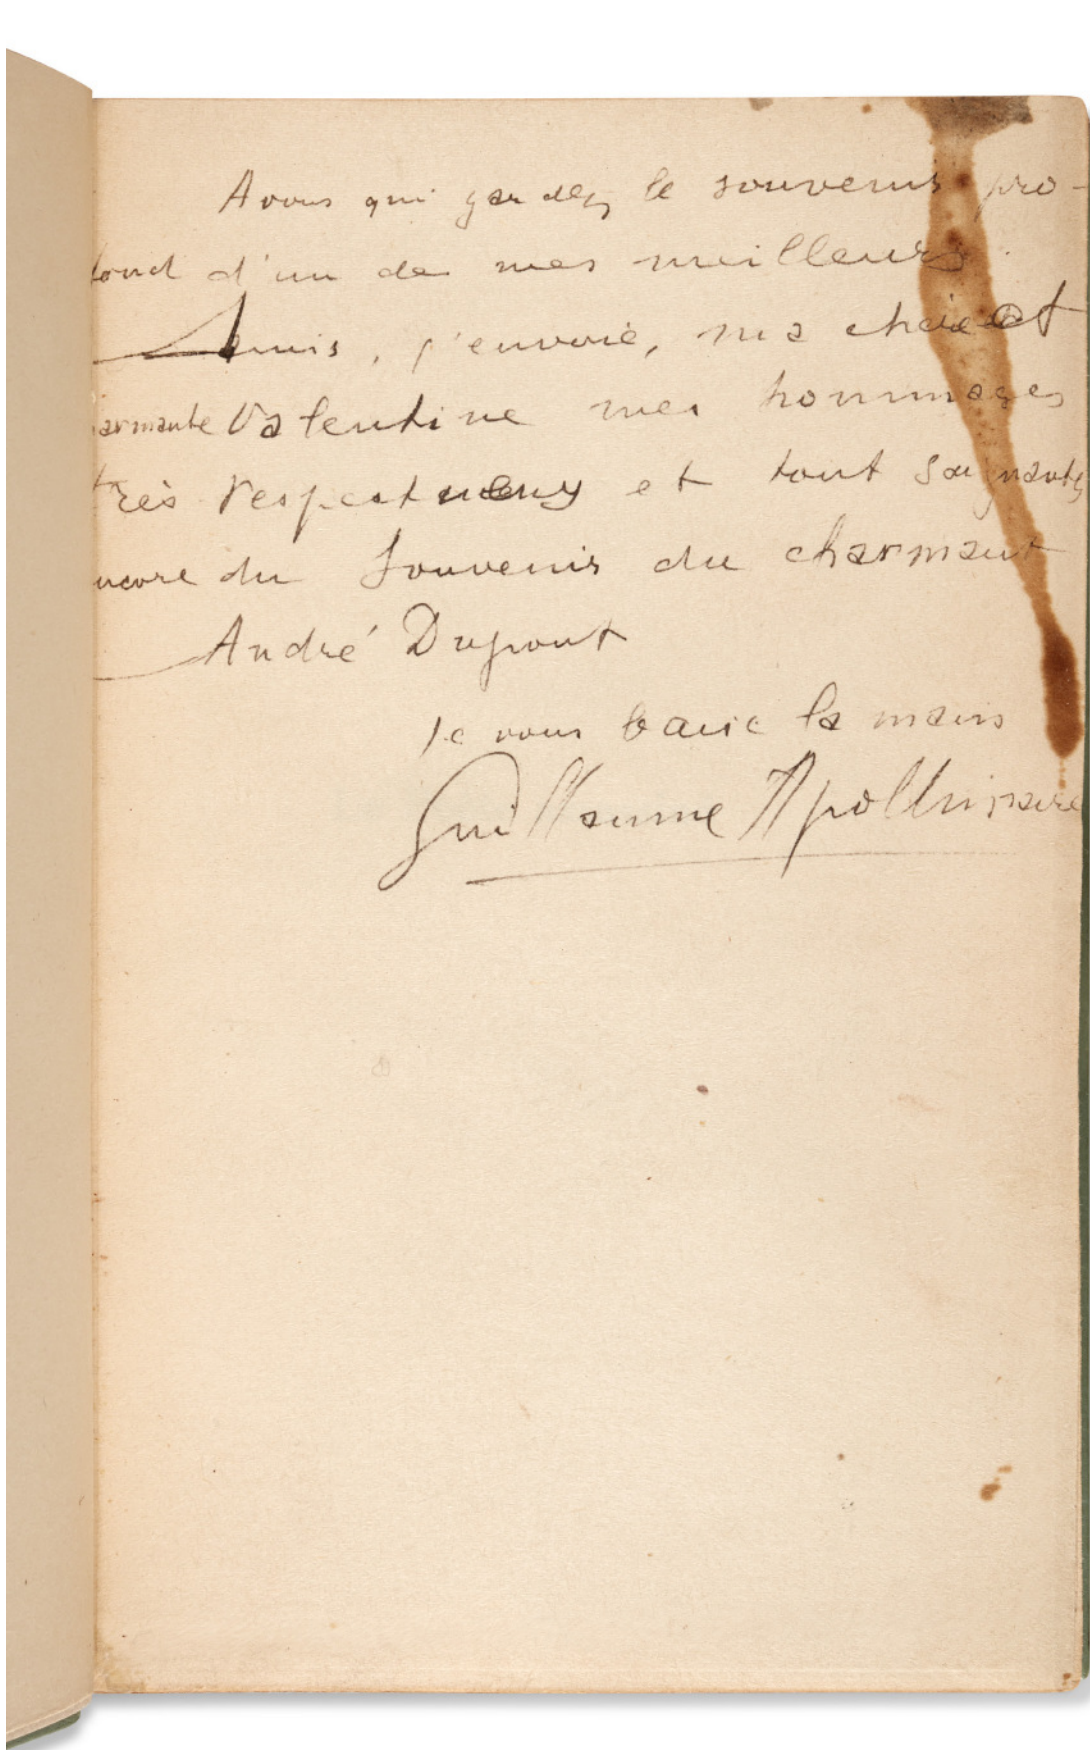 A vous qui gardez le souvenir pro-
fond d'un de mes meilleurs
Amis, j'envoie, ma chère et
charmante Valentine mes hommages
très respectueux et tout saignants
encore du Souvenir du charmant
André Dupont
Je vous baise la main
Guillaume Apollinaire